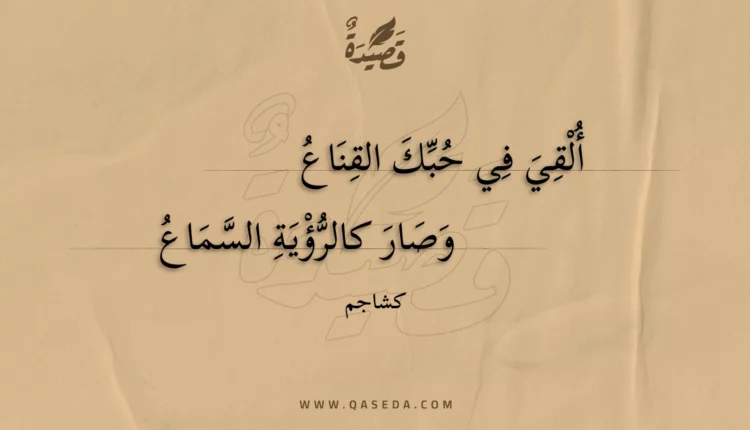 قَصِيْدَةٌ
أُلْقِيَ فِي حُبِّكَ القِنَاعُ
وَصَارَ كالرُّؤْيَةِ السَّمَاعُ
كشاجم
WWW.QASEDA.COM